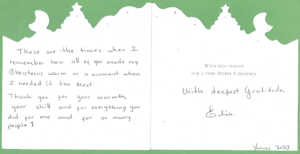 These are the times when I
remember how all of you made my
Christmas warm in a moment when
I needed it the most.
Thank you for your warmth,
your skill and for everything you
did for me and for so many
people!
WITH BEST WISHES
FOR A VERY MERRY CHRISTMAS
With deepest Gratitude,
Xmas 2023